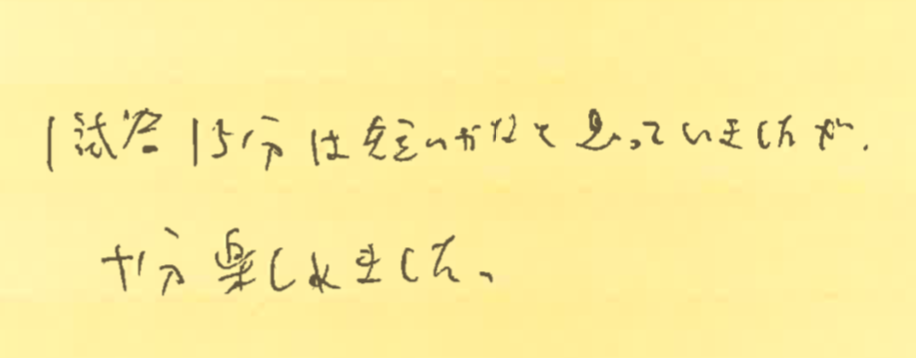 1試合15分は短いかなと思っていましたが、
十分楽しめました。